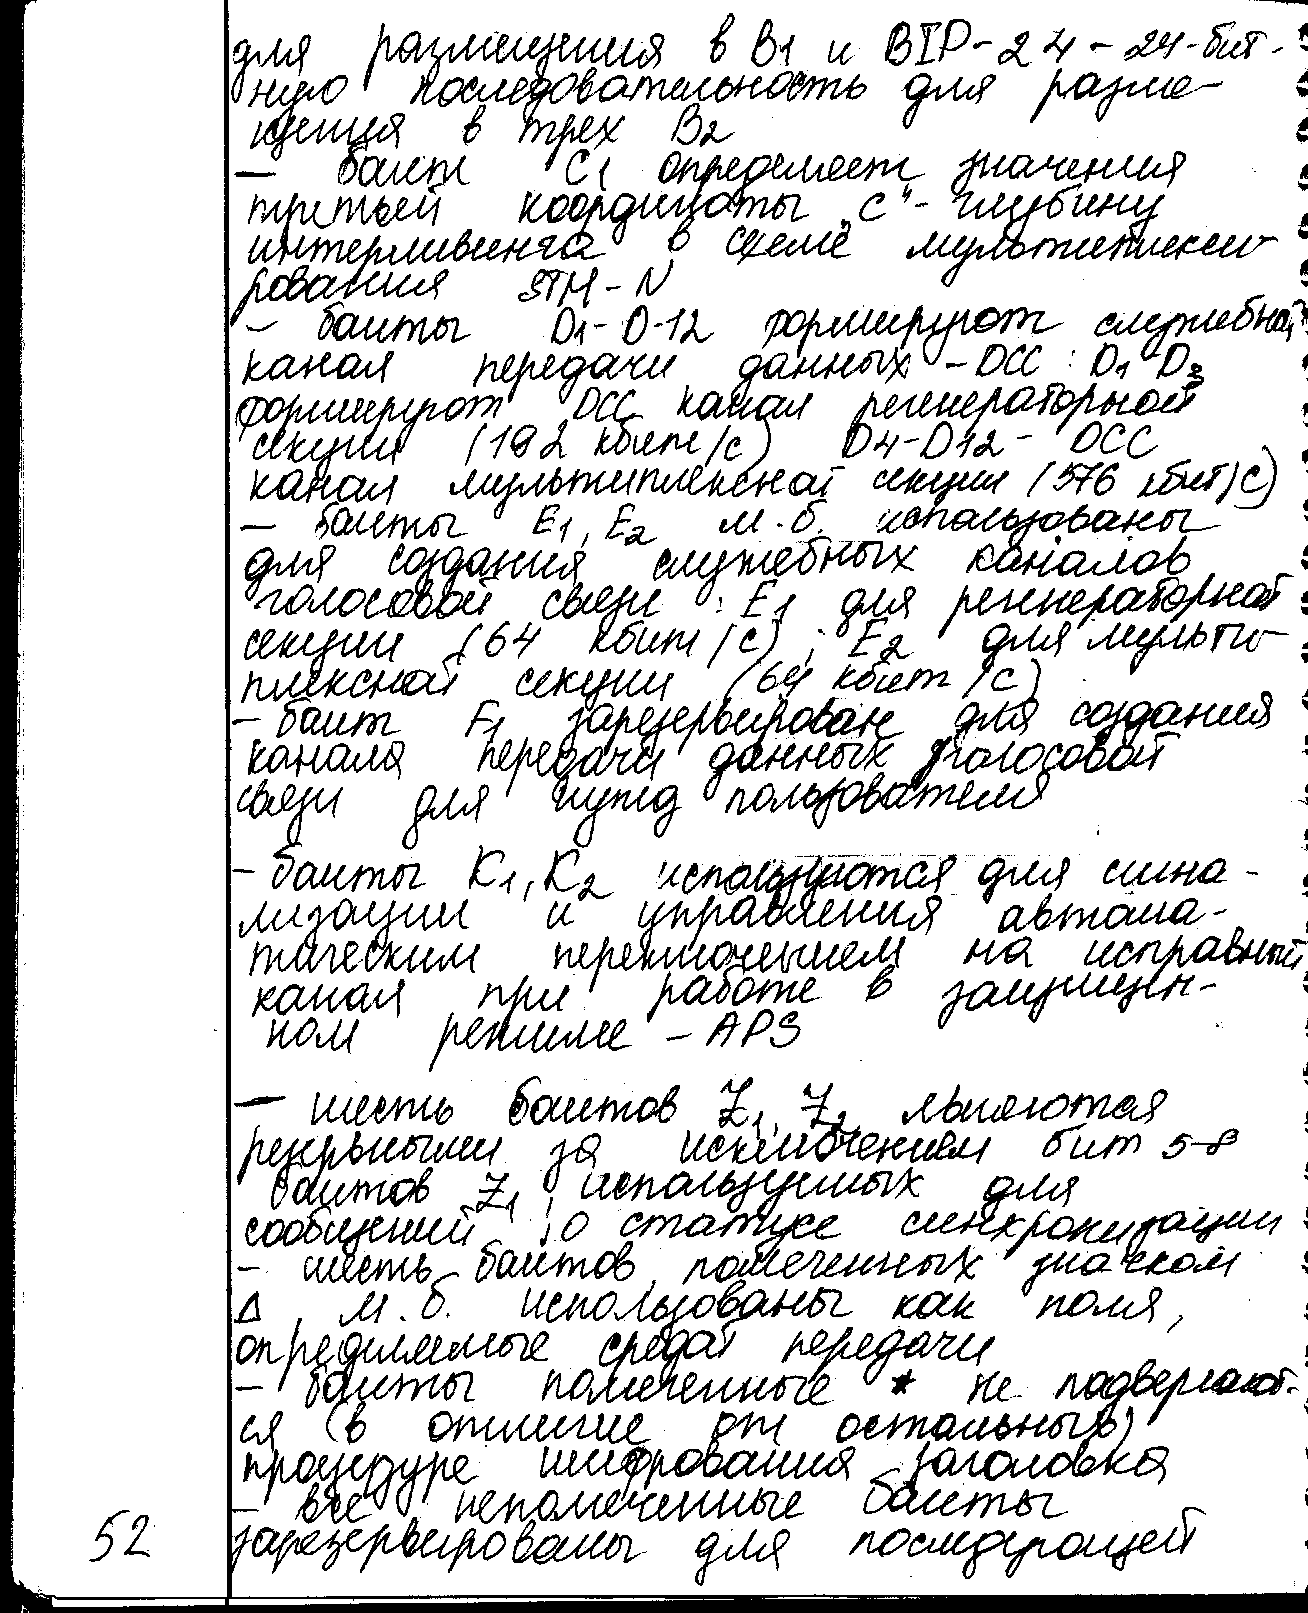 для размещения в B1 и BIP-24 - 24-бит-
ную последовательность для разме-
щения в трех B2
— байт C1 определяет значения
третьей координаты „C“ - глубину
интерливинга в схеме мультиплекси-
рования STM-N
- байты D1-D-12 формируют служебный
канал передачи данных - DCC : D1-D3
формируют DCC канал регенераторной
секции (192 кбит/с) D4-D12 - DCC
канал мультиплексной секции (576 кбит/с)
— байты E1, E2 м.б. использованы
для создания служебных каналов
голосовой связи : E1 для регенераторной
секции (64 кбит/с) ; E2 для мульти-
плексной секции (64 кбит/с)
- байт F1 зарезервирован для создания
канала передачи данных/голосовой
связи для нужд пользователя
- байты K1, K2 используются для сигна-
лизации и управления автома-
тическим переключением на исправный
канал при работе в защищен-
ном режиме - APS
— шесть байтов Z1, Z2 являются
резервными за исключением бит 5-8
байтов Z1, используемых для
сообщений о статусе синхронизации
- шесть байтов, помеченных значком
Δ м.б. использованы как поля,
определяемые средой передачи
- байты помеченные * не подвергают-
ся (в отличие от остальных)
процедуре шифрования заголовка
- все непомеченные байты
52 зарезервированы для последующей